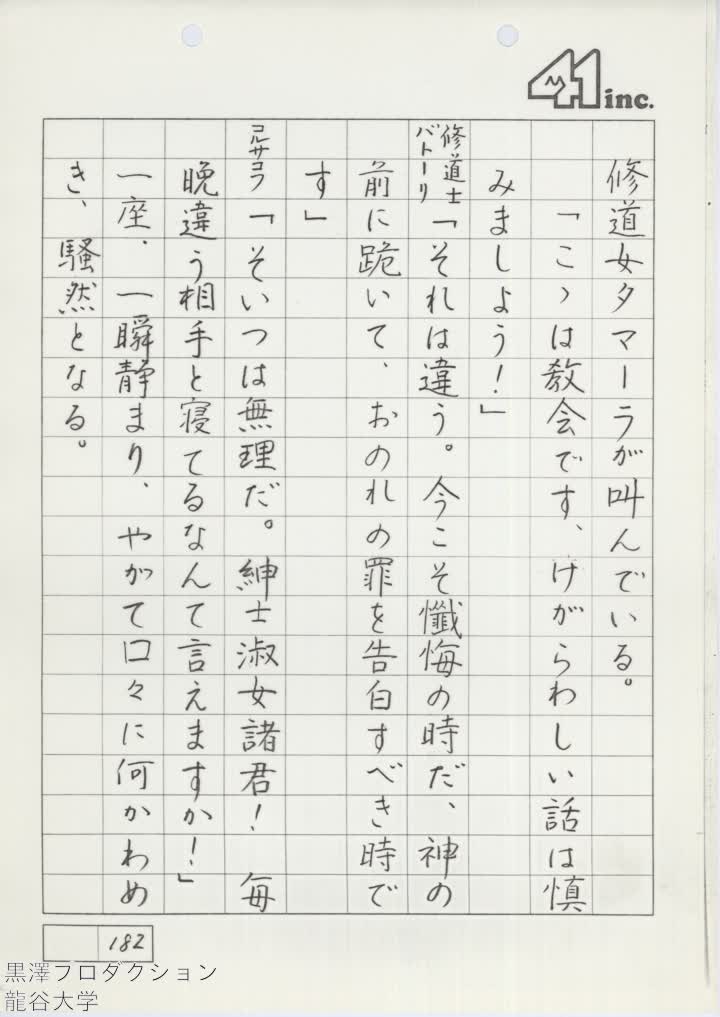 41 inc.
修道女タマーラが叫んでいる。
「こゝは教会です、けがらわしい話は慎
みましよう！」
修道士
バトーリ
「それは違う。今こそ懺悔の時だ、神の
前に跪いて、おのれの罪を告白すべき時で
す」
コルサコフ「そいつは無理だ。紳士淑女諸君！　毎
晩違う相手と寝てるなんて言えますか！」
一座、一瞬静まり、やがて口々に何かわめ
き、騒然となる。
182
黒澤プロダクション
龍谷大学